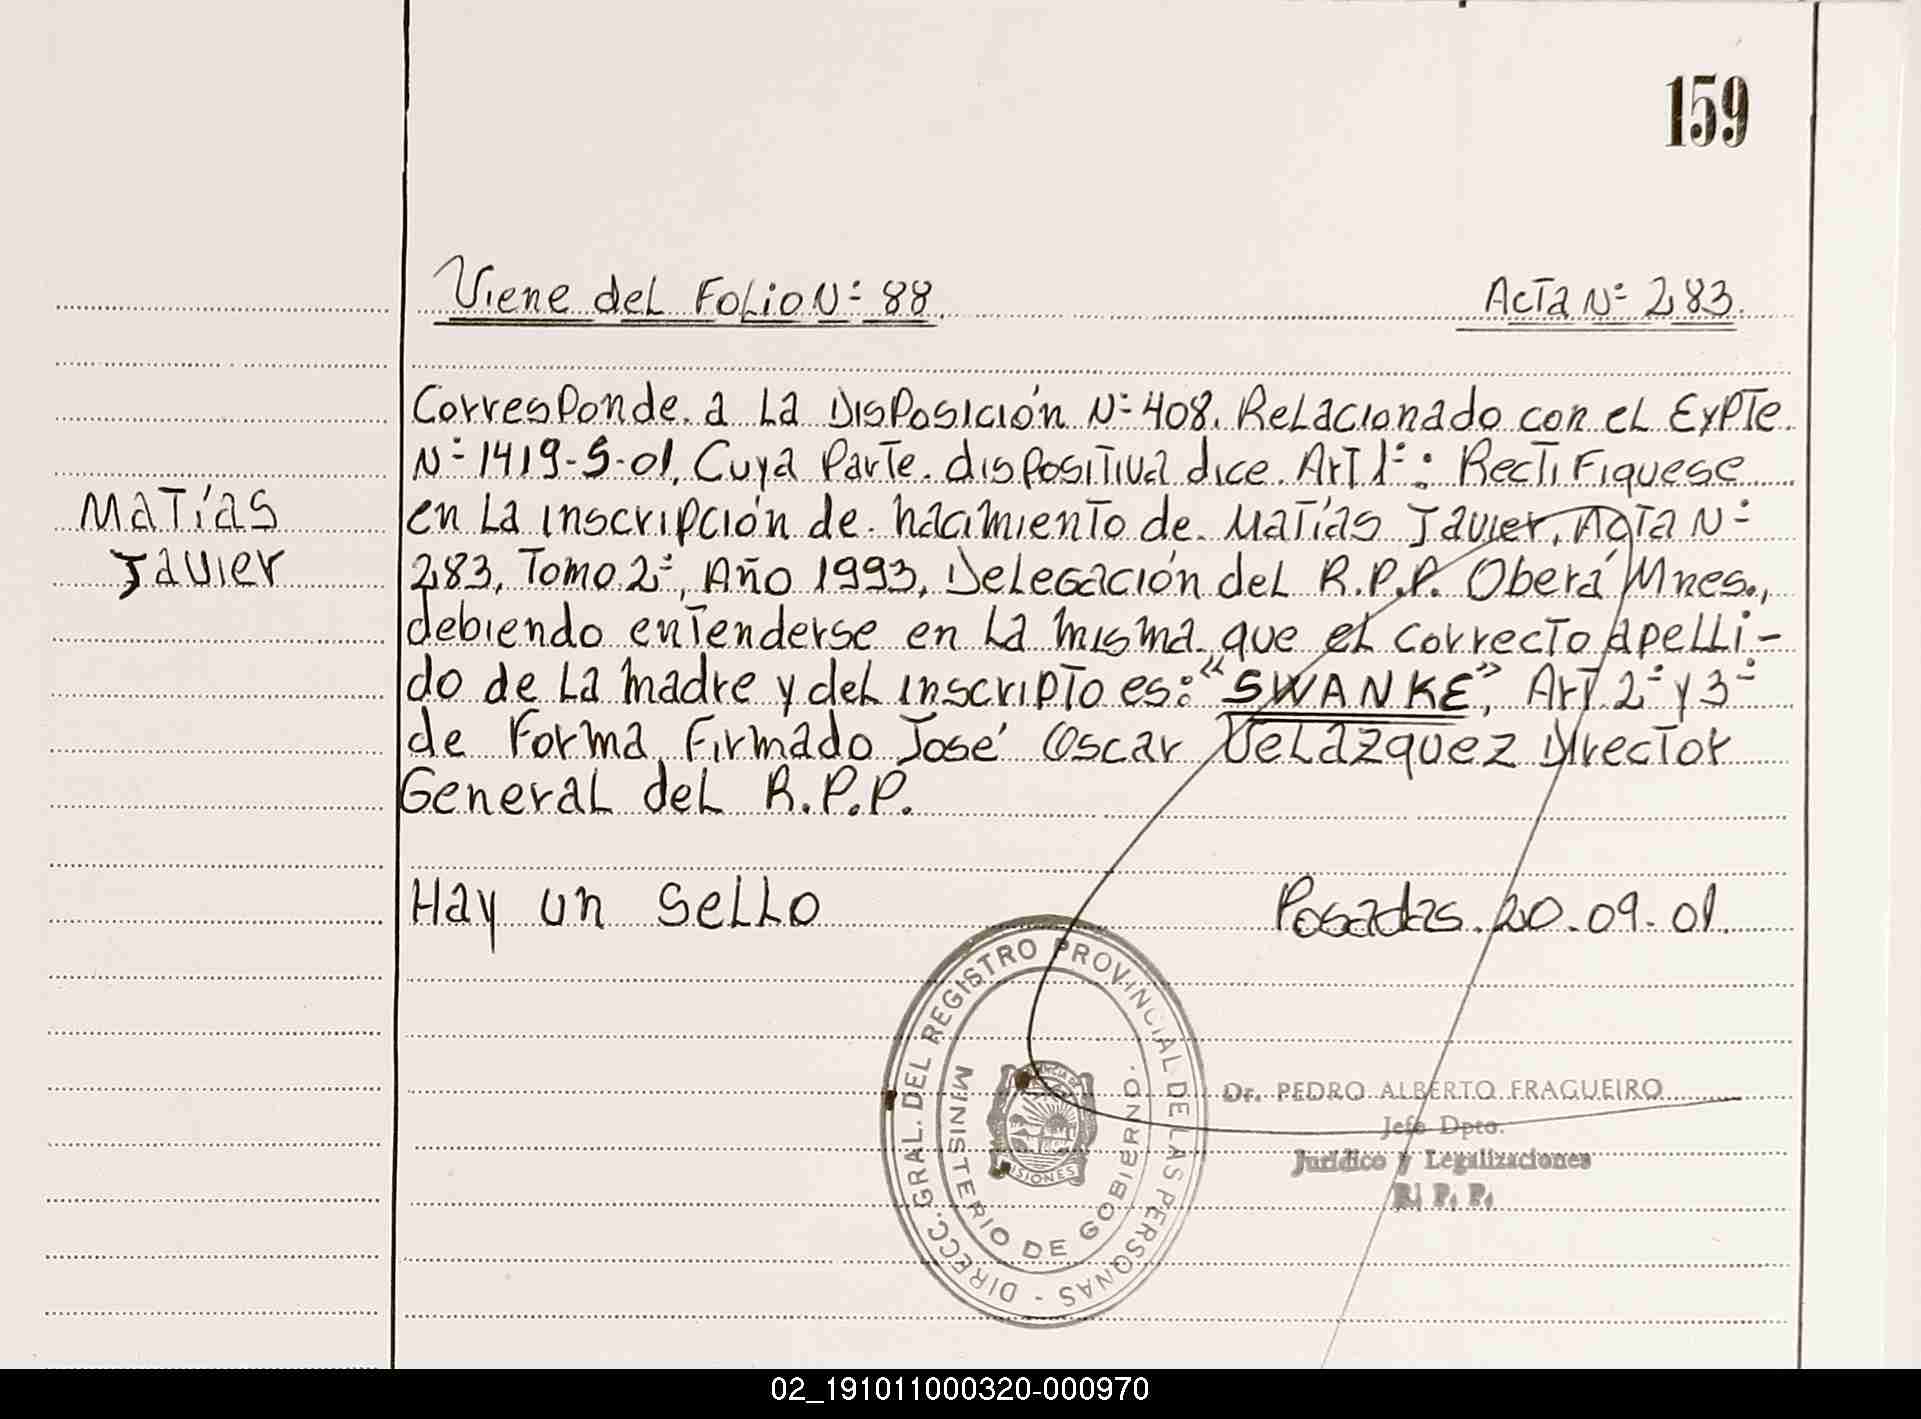 159
Viene del Folio Nº 88. Acta Nº 283.
Corresponde a la Disposición Nº 408. Relacionado con el Expte.
Nº 1419-S-01, Cuya Parte dispositiva dice Art 1º: Rectifiquese
Matías
en la inscripción de nacimiento de Matías Javier, Acta Nº
Javier
283, Tomo 2º, Año 1993, Delegación del R.P.P. Oberá Mnes.,
debiendo entenderse en la misma que el correcto apelli-
do de la madre y del inscripto es: "SWANKE", Art 2º y 3º
de Forma, Firmado José Oscar Velazquez Director
General del R.P.P.
Hay un sello Posadas. 20.09.01.
DIRECC. GRAL. DEL REGISTRO PROVINCIAL DE LAS PERSONAS -
MINISTERIO DE GOBIERNO.
MISIONES
Dr. PEDRO ALBERTO FRAGUEIRO
Jefe Dpto.
Jurídico y Legalizaciones
R. P. P.
02_191011000320-000970